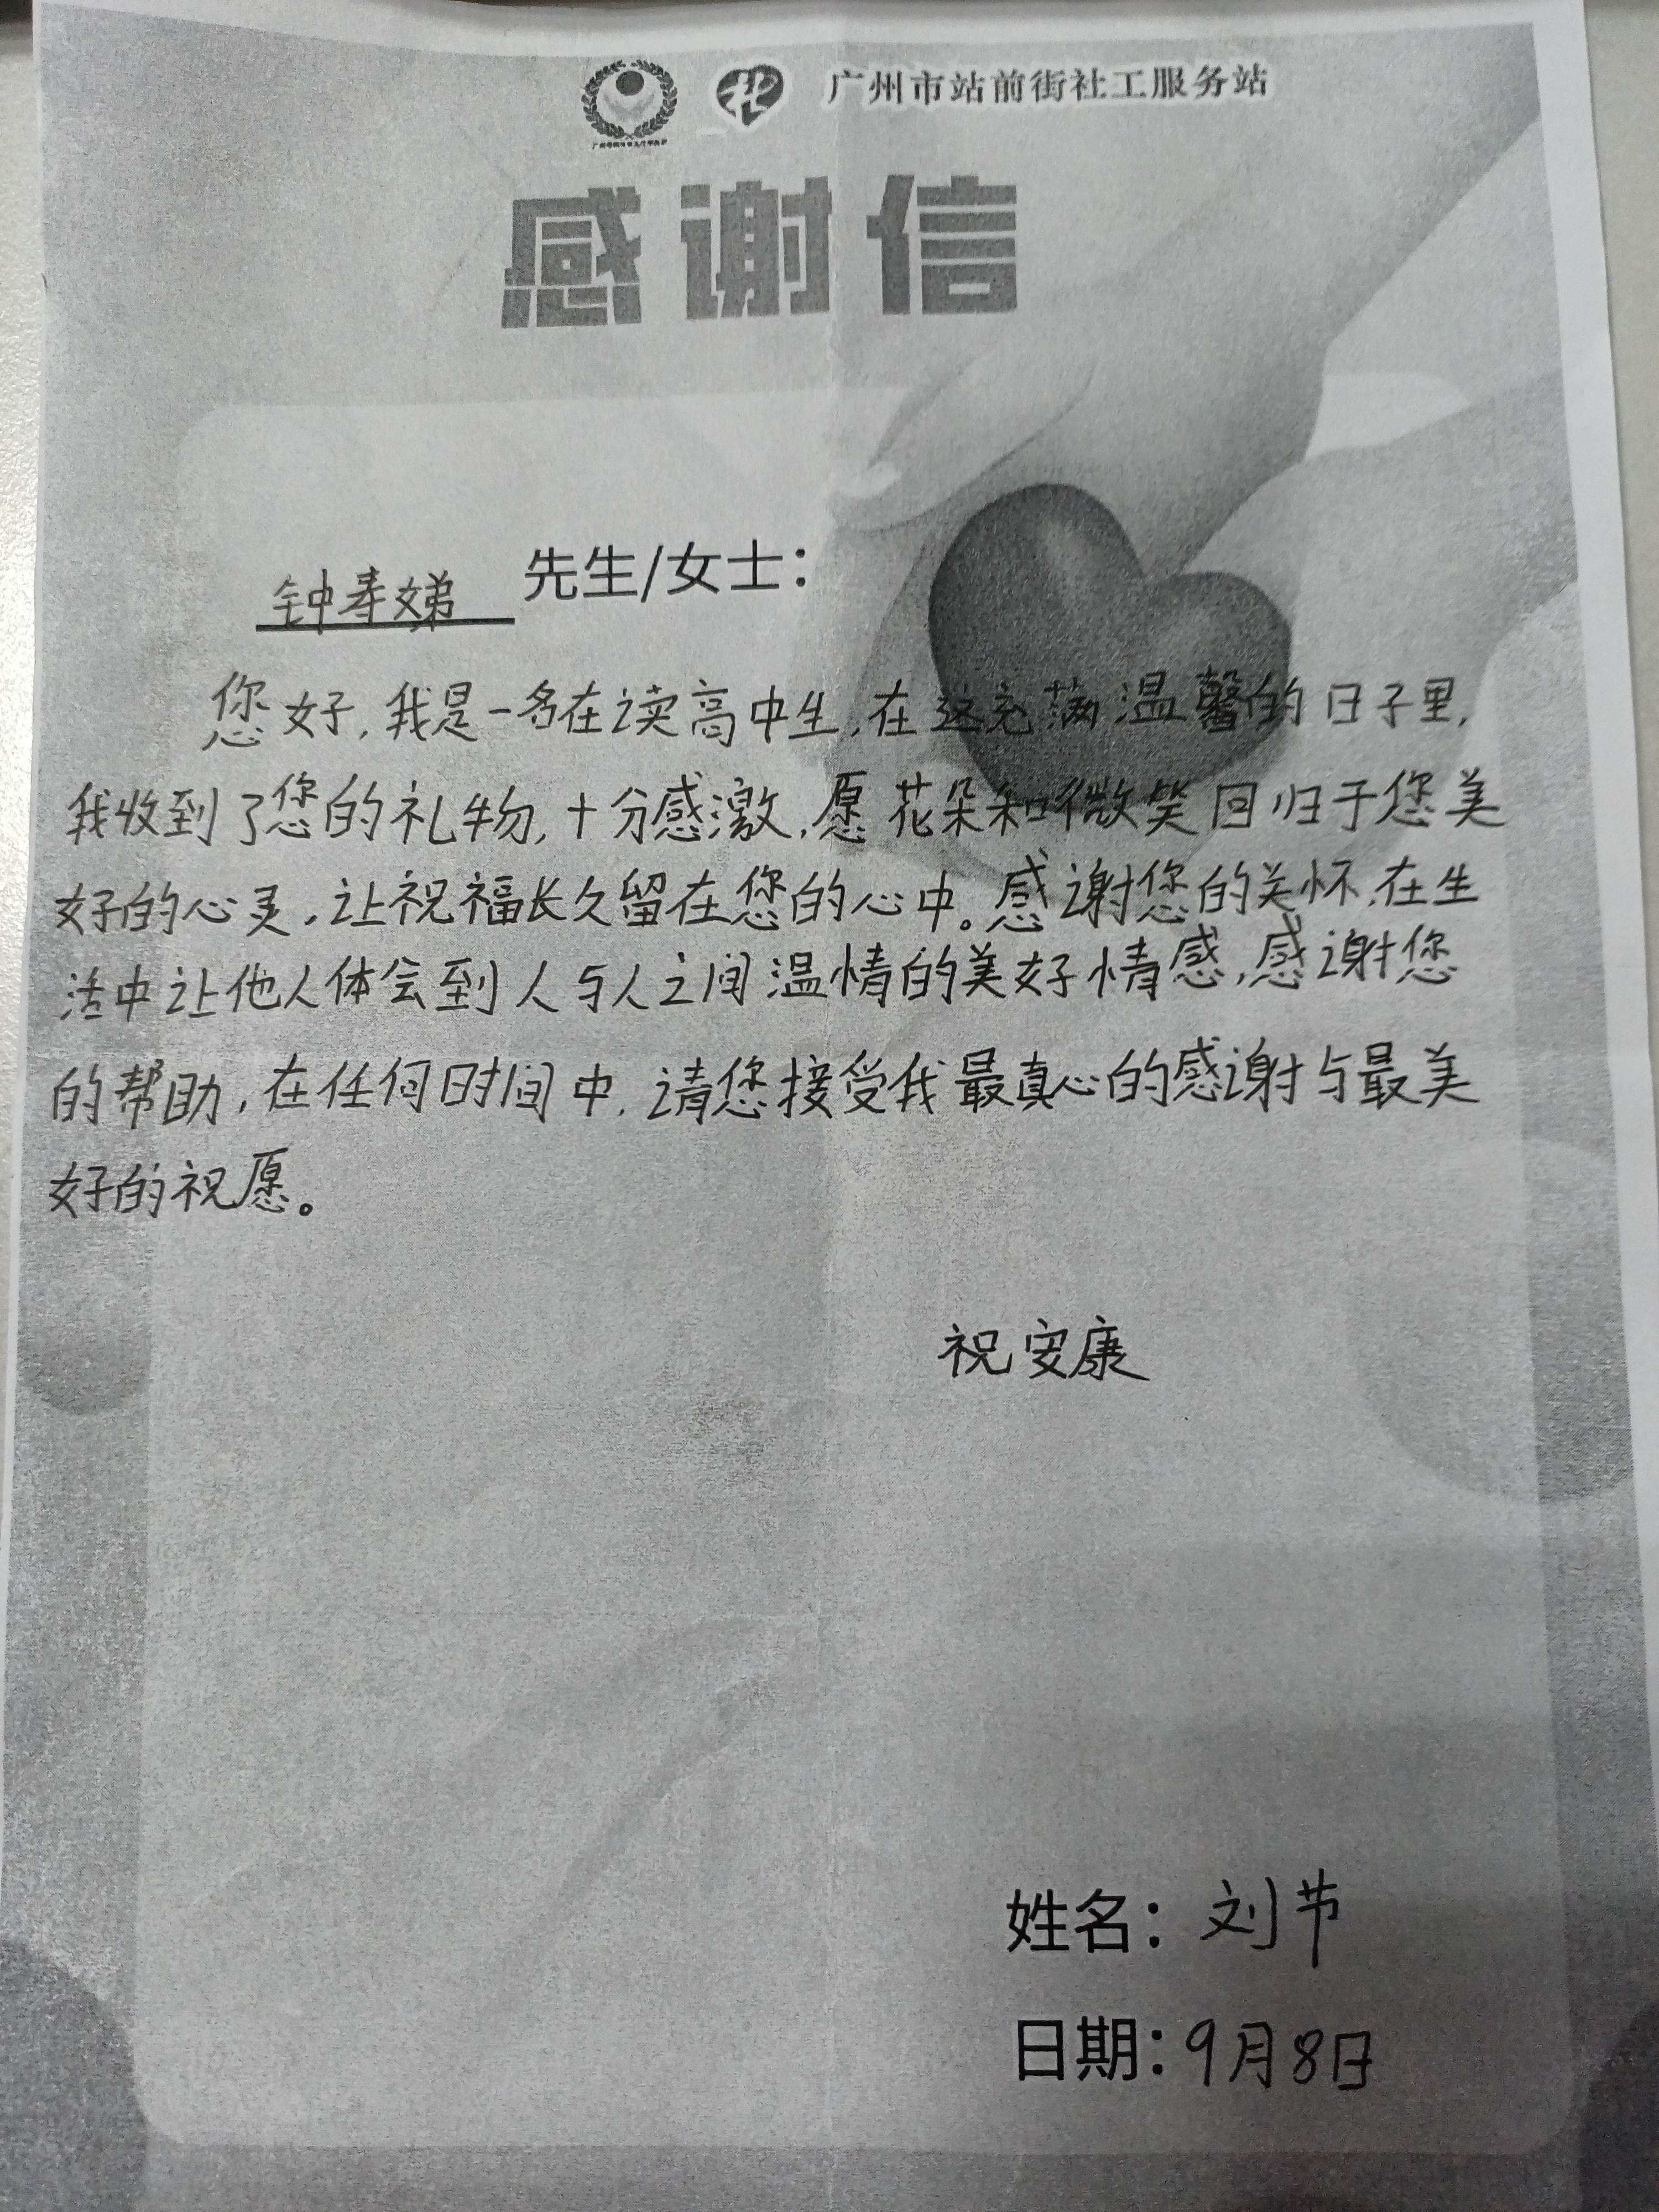 广州市站前街社工服务站
感谢信
钟寿娣 先生/女士：
您好，我是一名在读高中生，在这充满温馨的日子里，
我收到了您的礼物，十分感激，愿花朵和微笑回归于您美
好的心灵，让祝福长久留在您的心中。感谢您的关怀，在生
活中让他人体会到人与人之间温情的美好情感，感谢您
的帮助，在任何时间中，请您接受我最真心的感谢与最美
好的祝愿。
祝安康
姓名：刘节
日期：9月8日